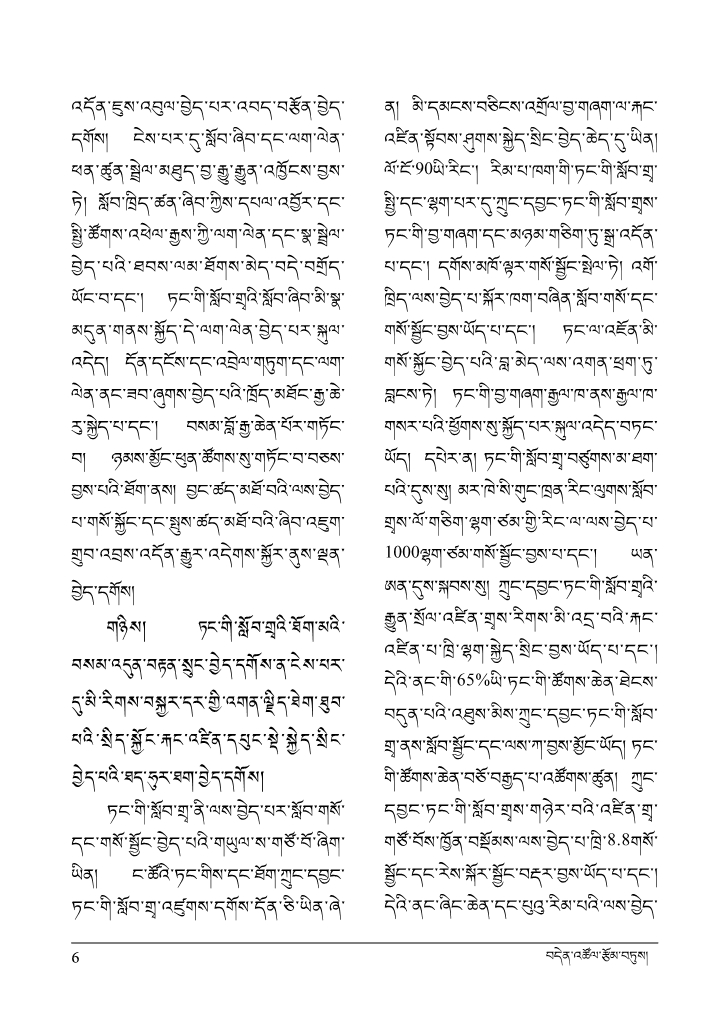 འདོན་ཇུས་འབུལ་བྱེད་པར་འབད་བརྩོན་བྱེད་
དགོས། ངེས་པར་དུ་སློབ་ཞིབ་དང་ལག་ལེན་
ཕན་ཚུན་སྦྲེལ་མཐུད་བྱ་རྒྱུ་རྒྱུན་འཁྱོངས་བྱས་
ཏེ། སློབ་ཁྲིད་ཚན་ཞིབ་ཀྱིས་དཔལ་འབྱོར་དང་
སྤྱི་ཚོགས་འཕེལ་རྒྱས་ཀྱི་ལག་ལེན་དང་སྣ་སྦྲེལ་
བྱེད་པའི་ཐབས་ལམ་ཐོགས་མེད་བདེ་བགྲོད་
ཡོང་བ་དང་། ཏང་གི་སློབ་གྲྭའི་སློབ་ཞིབ་མི་སྣ་
མདུན་གནས་སྐྱོད་དེ་ལག་ལེན་བྱེད་པར་སྐུལ་
འདེད། དོན་དངོས་དང་འབྲེལ་གཏུག་དང་ལག་
ལེན་ནང་ཟབ་ཞུགས་བྱེད་པའི་ཁྲོད་མཐོང་རྒྱ་ཆེ་
རུ་སྐྱེད་པ་དང་། བསམ་བློ་རྒྱ་ཆེན་པོར་གཏོང་
བ། ཉམས་མྱོང་ཕུན་ཚོགས་སུ་གཏོང་བ་བཅས་
བྱས་པའི་ཐོག་ནས། བྱང་ཚད་མཐོ་བའི་ལས་བྱེད་
པ་གསོ་སྐྱོང་དང་སྤུས་ཚད་མཐོ་བའི་ཞིབ་འཇུག་
གྲུབ་འབྲས་འདོན་རྒྱུར་འདེགས་སྐྱོར་ནུས་ལྡན་
བྱེད་དགོས།
གཉིས། ཏང་གི་སློབ་གྲྭའི་ཐོག་མའི་
བསམ་འདུན་བརྟན་སྲུང་བྱེད་དགོས་ན་ངེས་པར་
དུ་མི་རིགས་བསྐྱར་དར་གྱི་འགན་ལྗིད་ཐེག་ཐུབ་
པའི་སྲིད་སྐྱོང་རྐང་འཛིན་དཔུང་སྡེ་སྐྱེད་སྲིང་
བྱེད་པའི་ཐད་ཧུར་ཐག་བྱེད་དགོས།
ཏང་གི་སློབ་གྲྭ་ནི་ལས་བྱེད་པར་སློབ་གསོ་
དང་གསོ་སྐྱོང་བྱེད་པའི་གཡུལ་ས་གཙོ་བོ་ཞིག་
ཡིན། ང་ཚོའི་ཏང་གིས་དང་ཐོག་ཀྲུང་དབྱང་
ཏང་གི་སློབ་གྲྭ་འཛུགས་དགོས་དོན་ཅི་ཡིན་ཞེ་
ན། མི་དམངས་བཅིངས་འགྲོལ་བྱ་གཞག་ལ་རྐང་
འཛིན་སྟོབས་ཤུགས་སྐྱེད་སྲིང་བྱེད་ཆེད་དུ་ཡིན།
ལོ་ངོ་90ཡི་རིང་། རིམ་པ་ཁག་གི་ཏང་གི་སློབ་གྲྭ་
སྤྱི་དང་ལྷག་པར་དུ་ཀྲུང་དབྱང་ཏང་གི་སློབ་གྲྭས་
ཏང་གི་བྱ་གཞག་དང་མཉམ་གཅིག་ཏུ་སྒྲ་འདོན་
པ་དང་། དགོས་མཁོ་ལྟར་གསོ་སྐྱོང་སྤེལ་ཏེ། འགོ་
ཁྲིད་ལས་བྱེད་པ་སྐོར་ཁག་བཞིན་སློབ་གསོ་དང་
གསོ་སྦྱོང་བྱས་ཡོད་པ་དང་། ཏང་ལ་འཇོན་མི་
གསོ་སྐྱོང་བྱེད་པའི་བླ་མེད་ལས་འགན་ཕྲག་ཏུ་
བླངས་ཏེ། ཏང་གི་བྱ་གཞག་རྒྱལ་ཁ་ནས་རྒྱལ་ཁ་
གསར་པའི་ཕྱོགས་སུ་སྐྱོད་པར་སྐུལ་འདེད་བཏང་
ཡོད། དཔེར་ན། ཏང་གི་སློབ་གྲྭ་བཙུགས་མ་ཐག་
པའི་དུས་སུ། མར་ཁེ་སི་གུང་ཁྲན་རིང་ལུགས་སློབ་
གྲྭས་ལོ་གཅིག་ལྷག་ཙམ་གྱི་རིང་ལ་ལས་བྱེད་པ་
1000ལྷག་ཙམ་གསོ་སྦྱོང་བྱས་པ་དང་། ཡན་
ཨན་དུས་སྐབས་སུ། ཀྲུང་དབྱང་ཏང་གི་སློབ་གྲྭའི་
རྒྱུན་སྲོལ་འཛིན་གྲྭས་རིགས་མི་འདྲ་བའི་རྐང་
འཛིན་པ་ཁྲི་ལྷག་སྐྱེད་སྲིང་བྱས་ཡོད་པ་དང་།
དེའི་ནང་གི་65%ཡི་ཏང་གི་ཚོགས་ཆེན་ཐེངས་
བདུན་པའི་འཐུས་མིས་ཀྲུང་དབྱང་ཏང་གི་སློབ་
གྲྭ་ནས་སློབ་སྦྱོང་དང་ལས་ཀ་བྱས་མྱོང་ཡོད། ཏང་
གི་ཚོགས་ཆེན་བཅོ་བརྒྱད་པ་འཚོགས་ཚུན། ཀྲུང་
དབྱང་ཏང་གི་སློབ་གྲྭས་གཉེར་བའི་འཛིན་གྲྭ་
གཙོ་བོས་ཁྱོན་བསྡོམས་ལས་བྱེད་པ་ཁྲི་8.8གསོ་
སྦྱོང་དང་རེས་སྐོར་སྦྱོང་བརྡར་བྱས་ཡོད་པ་དང་།
དེའི་ནང་ཞིང་ཆེན་དང་པུའུ་རིམ་པའི་ལས་བྱེད་
6 བདེན་འཚོལ་རྩོམ་བཏུས།